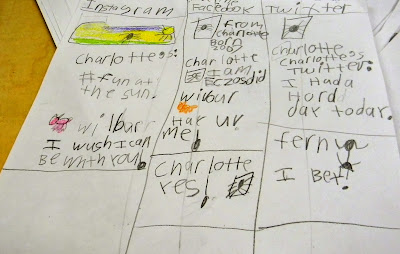 Instagram
Charlotte:
#funat
the sun.
wilburr
I wush I can
Be with you!
Facebook
From
charlotte
Born
Charlotte
I am
wilbur
Har ur
me!
Charlotte
yes!
Twitter
Charlotte
Charlotte:
Twitter:
I Had a
Hord
day today.
fern
I Bet!